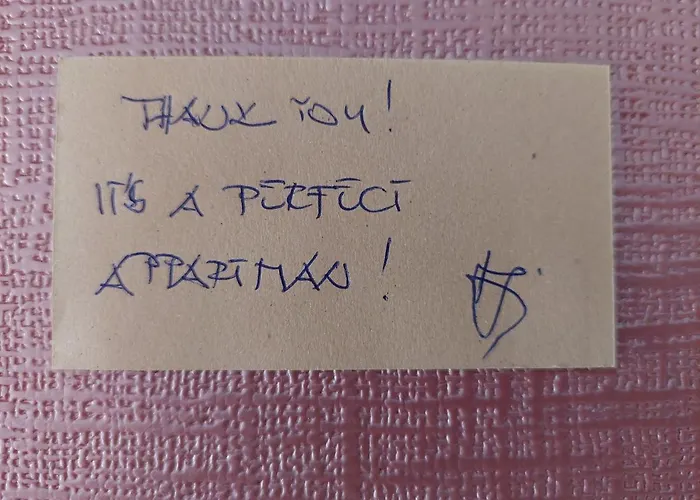 THANK YOU!
IT'S A PERFECT
APPARTMAN!